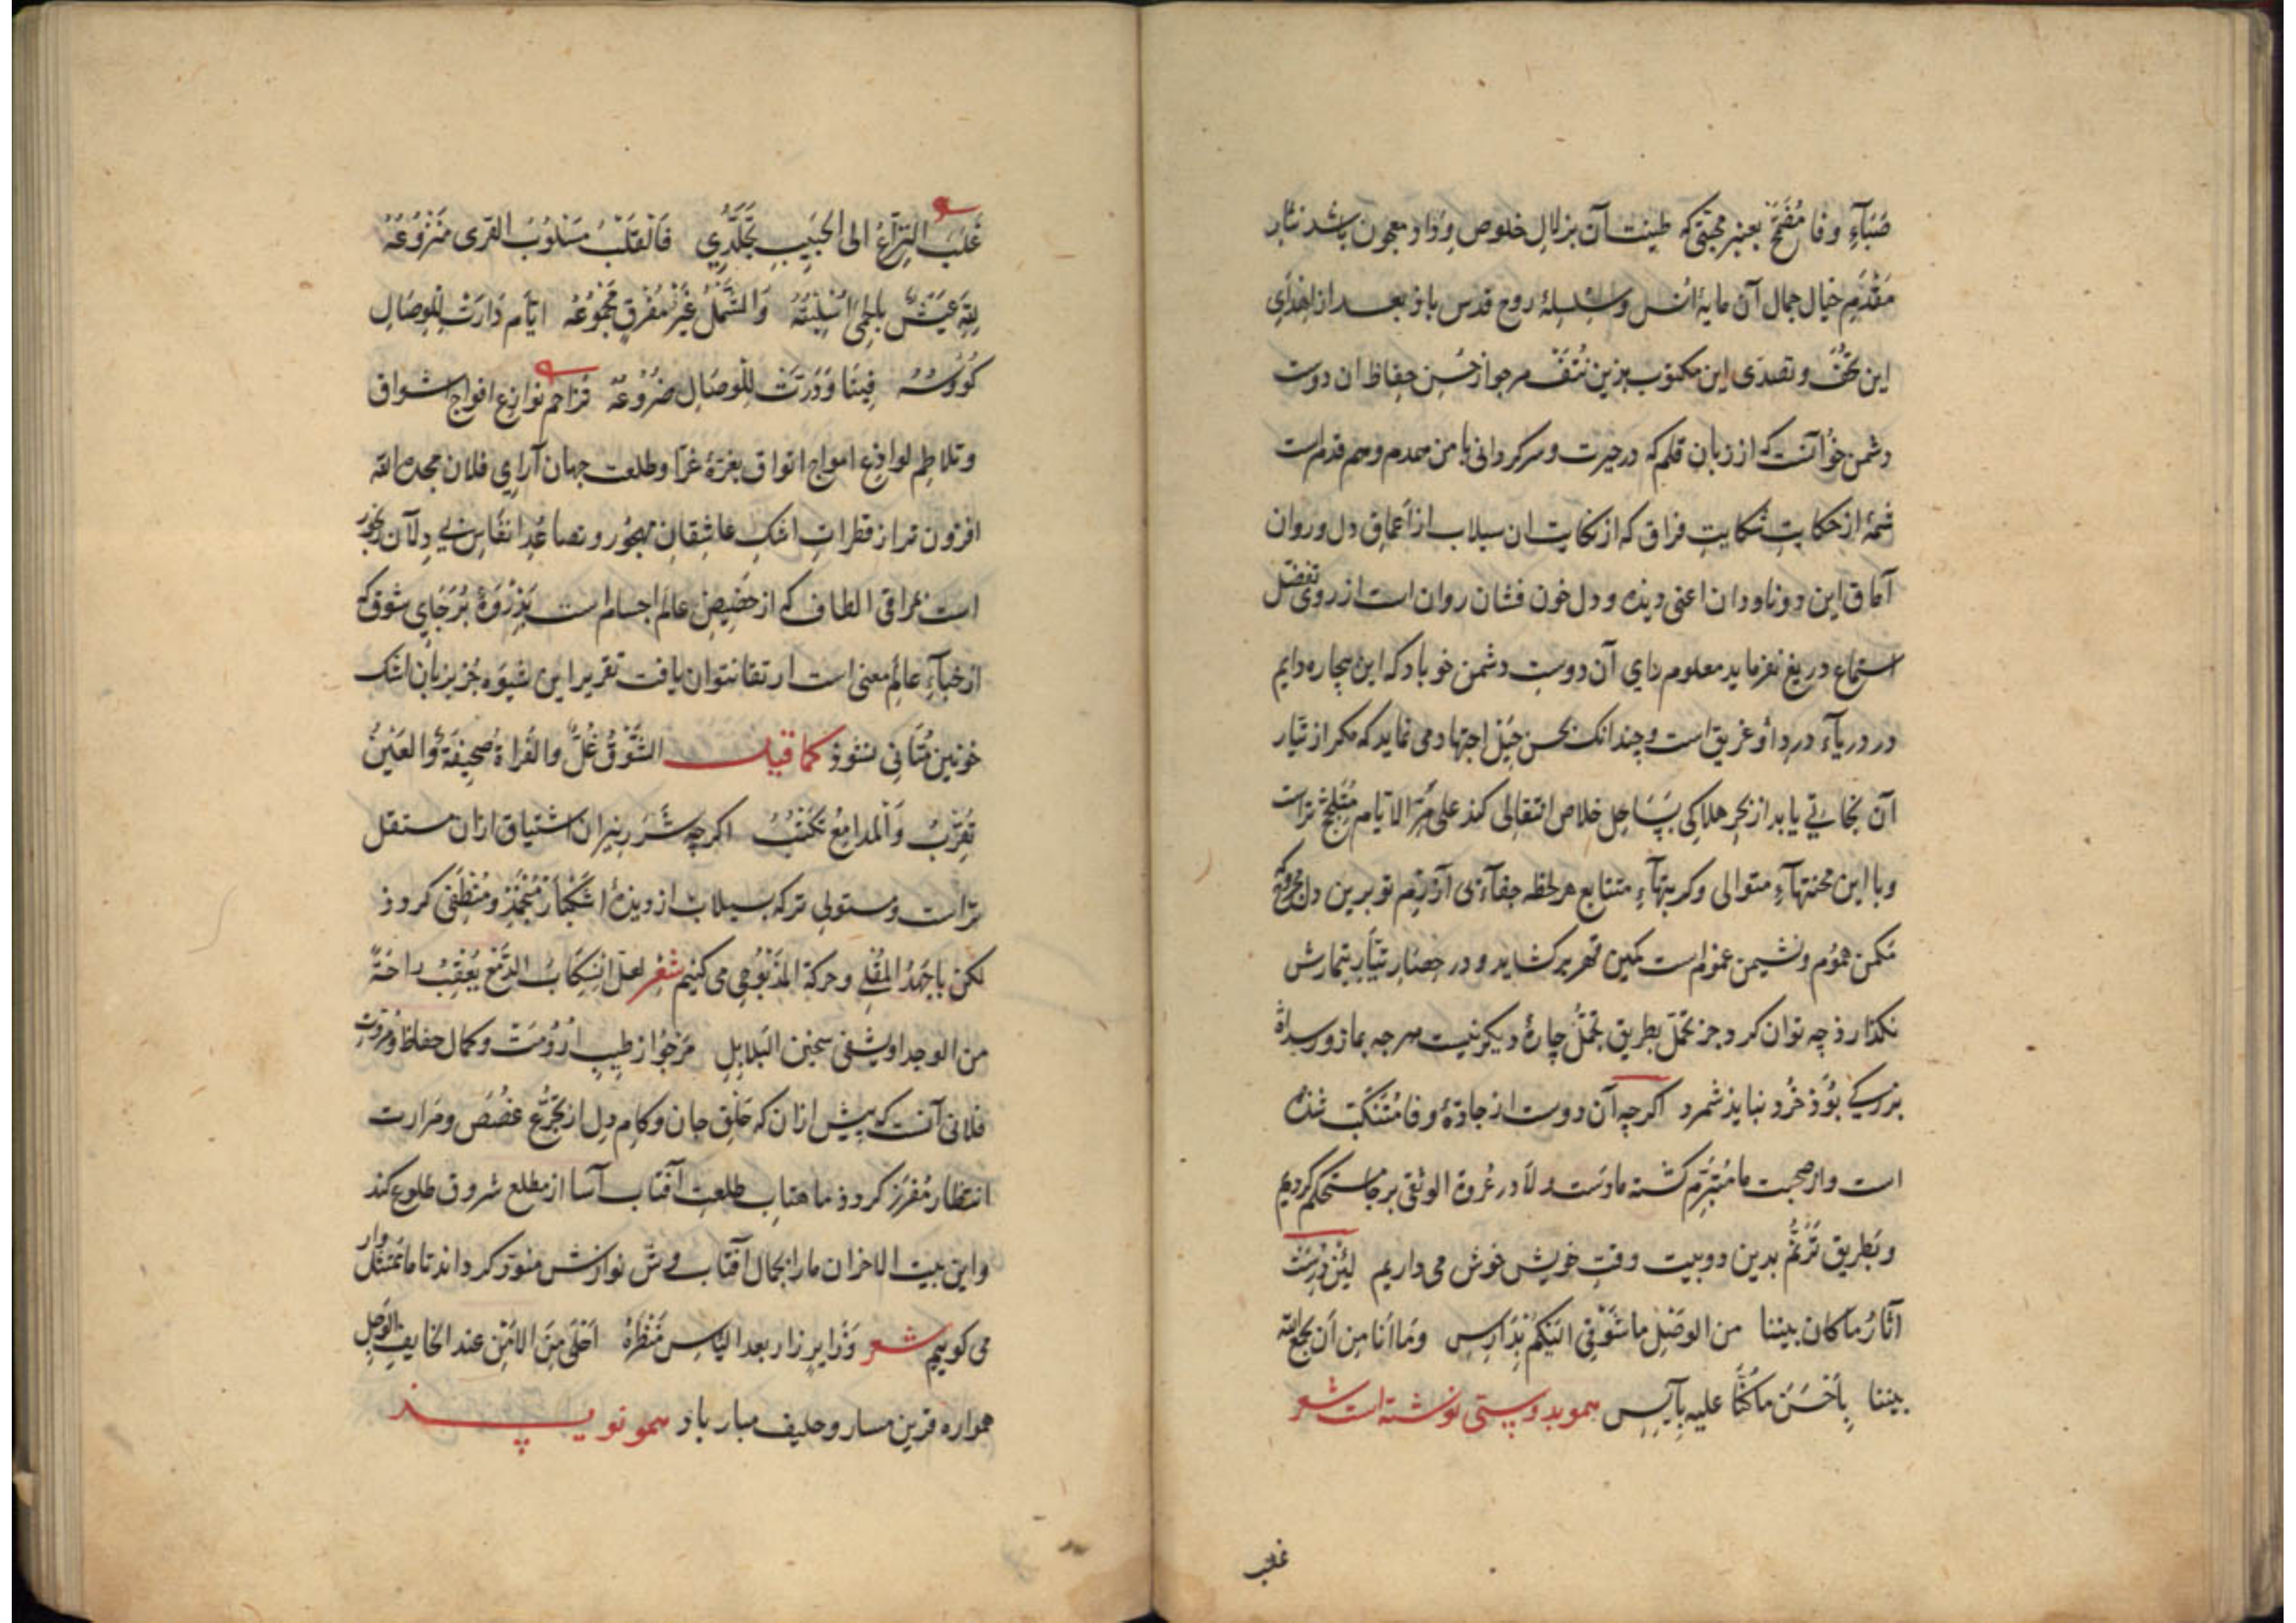 صَبَآءِ وفا مُفَتَّح بعنبر محبتی که طینت آن بزلال خلوص وِداد معجون باشد نثار
مَقْدَمِ خیال جمال آن مایهٔ انس و روح قدس باذ بعد از اهدای
این تحف و تصدی این مکتوب بزین مرجو از حُسن حِفاظ ان دوست
دشمن خو آنست که از زبانِ قلم که در حیرت و سرکردانی با من همدم و هم قدم است
شمهٔ از حکایتِ شکایتِ فراق که از نکایت ان سیلاب از اَعماق دل و روان
آماق این دو ناودان اعنی دیده و دل خون فشان روان است از روی تفضل
استماع دریغ نفرماید معلوم رای آن دوستِ دشمن خو باد که این بیچاره دایم
در دریآءِ درد او غریق است و چندانک بحسن حِیَل اجتهاد می نماید که مکر از تیار
آن نجاتی یابد از بحرِ هلاکی بسَاحِلِ خلاص انتقالی کند علی مَرِّ الایام تراست
و با این محنتهآءِ متوالی و کربتهآءِ متتابع هر لحظه جفآءی آرد برین دل مجروح که
مَکمن هُموم و نشیمن غموم است کمین قهر بر کشاید و در حِصار تیمارش
نکذارذ چه توان کرد جز تحمّل بطریق تجمُّل چارهٔ دیکر نیست هرجه بما زو رسد آه
بزرکی بُوَذ خُرد نباید شمرد اکرچه آن دوست از جادّهٔ وفا مُتَنَکِّب شده
است و از صحبت ما مُتَبَرِّم کشته ما دَست ولآ در عُروة الوثقی برجا مستحکم کردیم
و بطریق تَرَنُّم بدین دو بیت وقتِ خویش خوش می داریم لَئِنْ دَرَسَتْ
آثارُ ما کان بیننا من الوصْلِ ما شَوْقِی الَیکُم بِدَارِسِ وَما أنا مِن أن یجمع الله
بیننا بِأَحْسَنِ ما کُنَّا علیه بِآیِسِ همو بدوستی نوشته است شعر
غلب
غَلَبَ النِزاعُ الی الحَبِیبِ تَجَلُّدِی فَالقَلْبُ مَسْلُوبُ القری مَنْزُوعَهُ
لِلّهِ عَیْشٌ بالحِمَی وَالشَّمْلُ غَیْرُ مُفَرَّقٍ مَجْمُوعُهُ ایّام دَارَتْ لِلوِصَالِ
کُؤُسُهُ فِینَا وَدَرَّتْ لِلْوِصَالِ ضُرُوعَهُ تزاحم نوازع افواج اشواق
و تلاطم لواذع امواج اتواق بغرّهٔ غرّا و طلعت جهان آرای فلان مجده الله
افزون تر از قطراتِ اشکِ عاشقانِ مهجُور و تصاعُدِ انفاس بی دِلان رنجور
است بمراقی الطاف که از حضیض عالم اجسام است بِذِرْوَهٔ بُرجهای شوق که
از خبآءِ عالَمِ معنی است ارتقا نتوان یافت تقریر این شیوه جُز بزبان اشک
خونین مُتأتی نشوذ کما قیل الشَّوْقُ غُلٌّ والفُراةُ صَحِیفَةٌ والعَیْنُ
تُعْرِبُ وَالمدامِعُ تَکْتُبُ اکرچه شَرَرِ نیران اشتیاق ازان مستقل
تراست و مستولی تر که بسیلاب از دیدهٔ اشکبار مُنخَمِذ و مُنْطَفِی کردذ
لکن باجَهْدُ المُقِلّ و حرکة المَذْبُوح می کنیم شعر لعل انْسِکابُ الدَّمْعِ یُعْقِبُ راحَةً
من الوجد او یشفی سجین البَلابِلِ مَرجوّ از طیبِ اَرُومَت و کمال حفاظ و مروت
فلانی آنست که پیش ازان که حَلْقِ جان و کامِ دِل از تجرُّعِ غُصَص و مرارت
انتظار مُقرَّر کردذ ماهتابِ طلعتِ آفتاب آسا از مطلع شروق طلوع کند
و این بیت الاحزان ما را بجمال آفتاب وش نوازش منوّر کرداند تا ما متمثل وار
می کوییم شعر وَزایرٍ زار بعد الیَاسِ مَنْظَرُهُ اَحْلَی مِنَ الامْنِ عند الخایفِ الوَجِلِ
همواره قرین مسار و حلیف مبار باد همو نویسذ